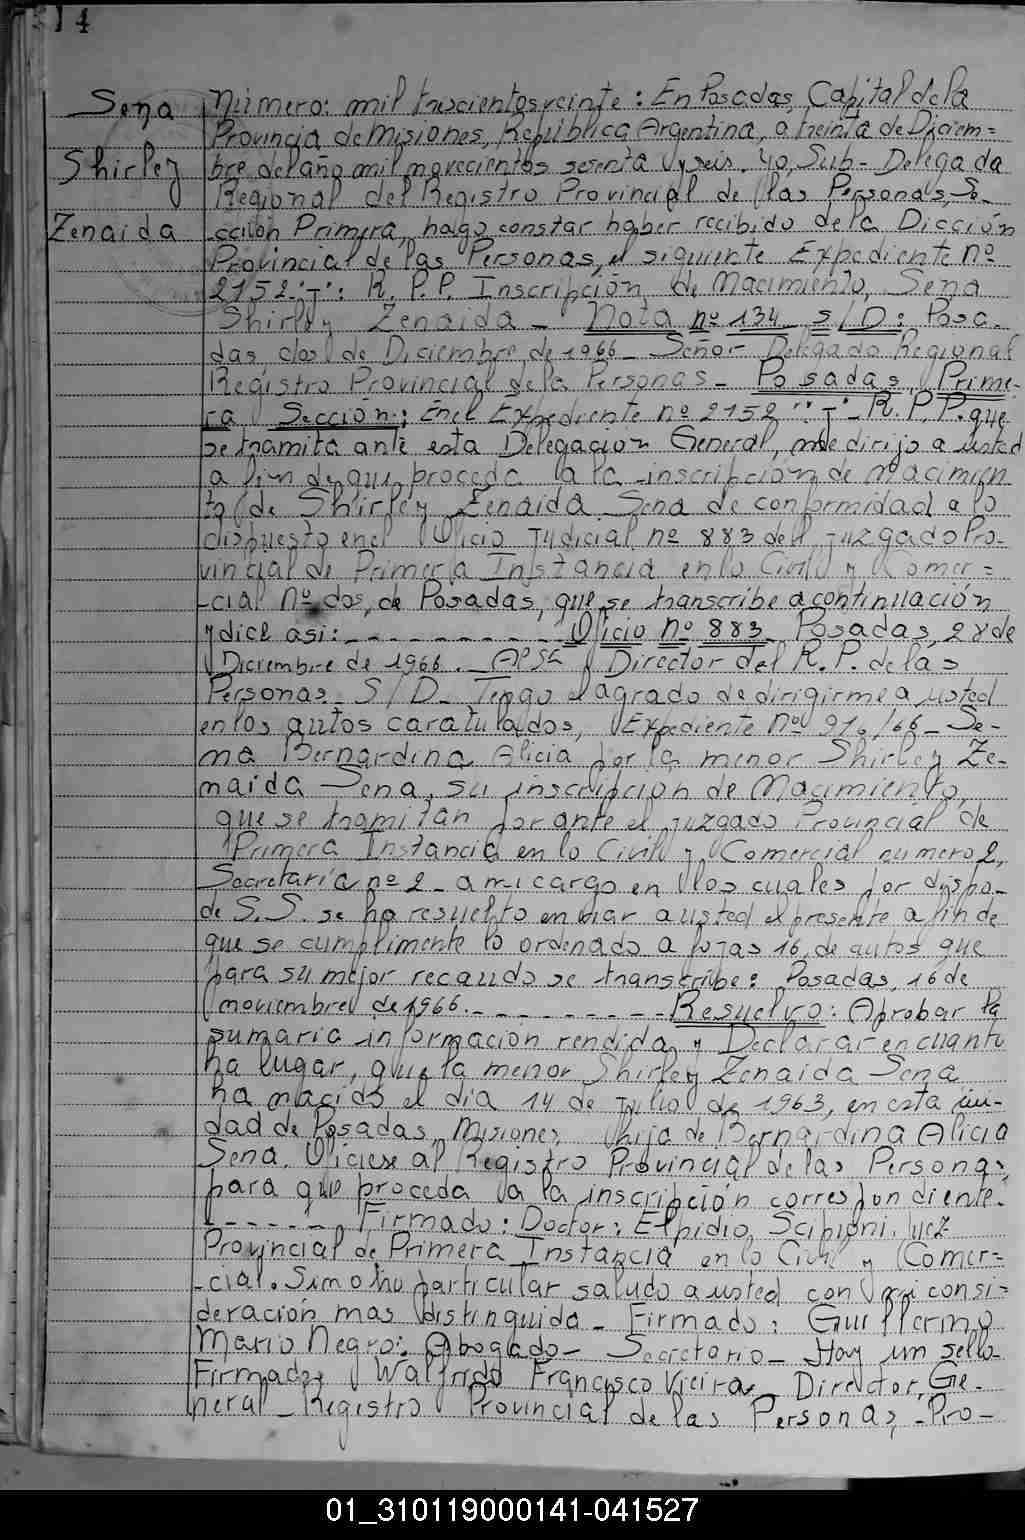 14
Sena
Shirley
Zenaida
Número: mil trescientos veinte: En Posadas, Capital de la
Provincia de Misiones, República Argentina, a treinta de Diciem=
bre del año mil novecientos sesenta y seis. yo, Sub- Delegada
Regional del Registro Provincial de las Personas, Se-
cción Primera, hago constar haber recibido de la Dicción
Provincial de las Personas, el siguiente Expediente nº
2152."I": R. P. P. Inscripción de Nacimiento, Sena
Shirley Zenaida - Nota nº 134 S/D: Posa-
das, dos de Diciembre de 1966 - Señor Delegado Regional
Registro Provincial de la Personas - Posadas Prime-
ra Sección: En el Expediente nº 2152 "I" - R. P. P. que
se tramita ante esta Delegación General, me dirijo a usted
a fin de que proceda a la inscripción de nacimien
to de Shirley Zenaida Sena de conformidad a lo
dispuesto en el Oficio Judicial nº 883 del Juzgado Pro-
vincial de Primera Instancia en lo Civil y Comer=
-cial nº dos, de Posadas, que se transcribe a continuación
y dice asi: - - - - - - - - - Oficio nº 883 - Posadas, 2 de
Diciembre de 1966. Al Director del R. P. de las
Personas - S/D - Tengo el agrado de dirigirme a usted
en los autos caratulados, Expediente nº 916/66 - Se-
na Bernardina Alicia por la menor Shirley Ze-
naida Sena, su inscripción de Nacimiento,
que se tramitan por ante el Juzgado Provincial de
Primera Instancia en lo Civil y Comercial numero 2,
Secretaría nº 2 - a mi cargo en los cuales por dispo-
de S.S. se ha resuelto enviar a usted el presente a fin de
que se cumplimente lo ordenado a fojas 16, de autos que
para su mejor recaudo se transcribe: Posadas, 16 de
noviembre de 1966. - - - - - - - - - Resuelvo: Aprobar la
sumaria información rendida y Declarar en cuanto
ha lugar, que la menor Shirley Zenaida Sena
ha nacido el día 14 de Julio de 1963, en esta ciu-
dad de Posadas, Misiones, hija de Bernardina Alicia
Sena. Ofíciese al Registro Provincial de las Personas,
para que proceda a la inscripción correspondiente.
- - - - - - Firmado: Doctor: Elpidio Scipioni. Juez
Provincial de Primera Instancia en lo Civil y Comer=
-cial. Sin otro particular saludo a usted con mi consi=
deración mas distinguida - Firmado: Guillermo
Mario Negro: Abogado - Secretario - Hay un sello
Firmado: Walfrido Francisco Vieira - Director, Ge-
neral - Registro Provincial de las Personas, - Pro-
01_310119000141-041527